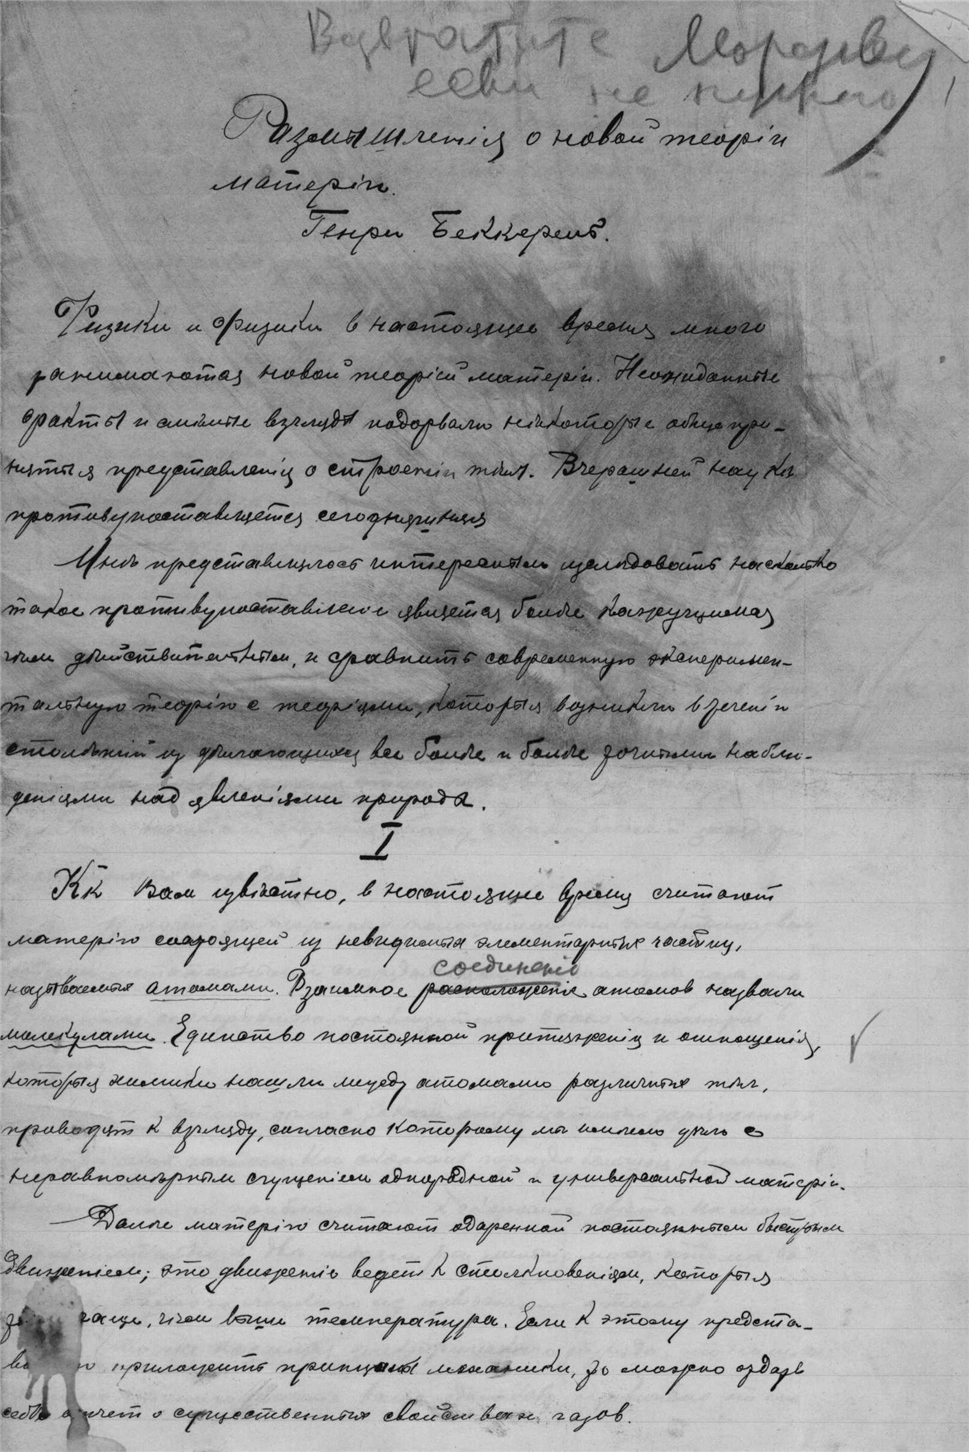 Возвратите Морозову
если не нужно
Размышленія о новой теоріи
матеріи.
Генри Беккерель.
Физики и физики в настоящее время много
занимаются новой теоріей матеріи. Неожиданные
факты и смѣлые взгляды подорвали нѣкоторые общепри-
нятыя представленія о строеніи тѣл. Вчерашней наукѣ
противупоставляется сегодняшняя
Мнѣ представлялось интересным изслѣдовать насколько
такое противупоставленіе является болѣе кажущимся
чѣм дѣйствительным, и сравнить современную эксперимен-
тальную теорію с теоріями, которыя возникли в теченіи
столѣтій из дѣлающихся все болѣе и болѣе точными наблю-
деніями над явленіями природы.
I
Как Вам извѣстно, в настоящее время считают
матерію состоящей из невидимых элементарных частиц,
соединеніе
называемых атомами. Взаимное расположеніе атомов назвали
молекулами. Единство постоянной притяженія и отношенія,
которыя химики нашли между атомами различных тѣл,
приводят к взгляду, согласно которому мы имѣем дѣло с
неравномѣрным сгущеніем однородной и универсальной матеріи.
Далѣе матерію считают одаренной постоянным быстрым
движеніем; это движеніе ведет к столкновеніям, которыя
чаще, чѣм выше температура. Если к этому предста-
приложить принципы механики, то можно отдать
себѣ отчет о существенных свойствах газов.